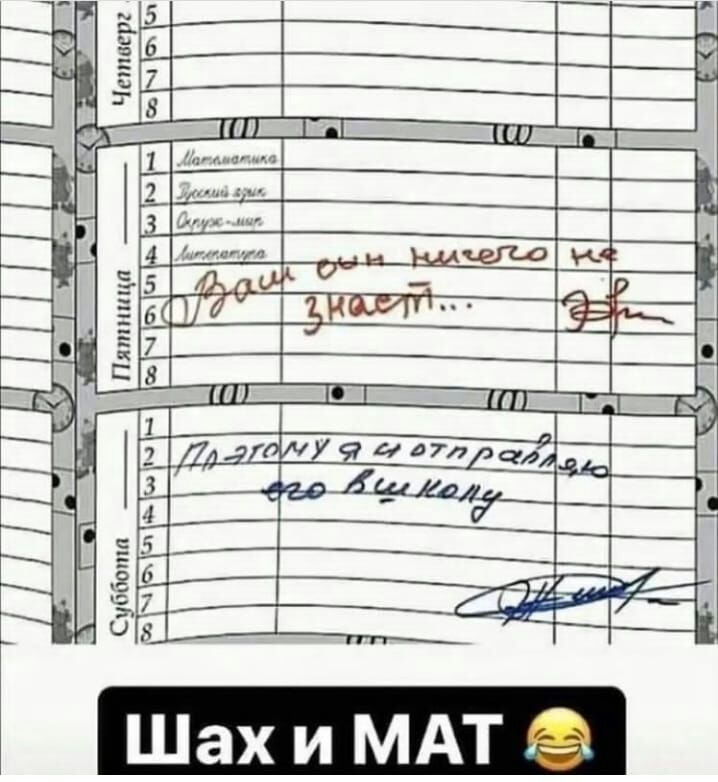 Четверг
5
6
7
8
Пятница
1 Математика
2 Русский язык
3 Окруж-мир
4 Литература
5
6
7
8
Ваш сын ничего не
знает...
Суббота
1
2
3
4
5
6
7
8
Поэтому я и отправляю
его в школу
Шах и МАТ 😂